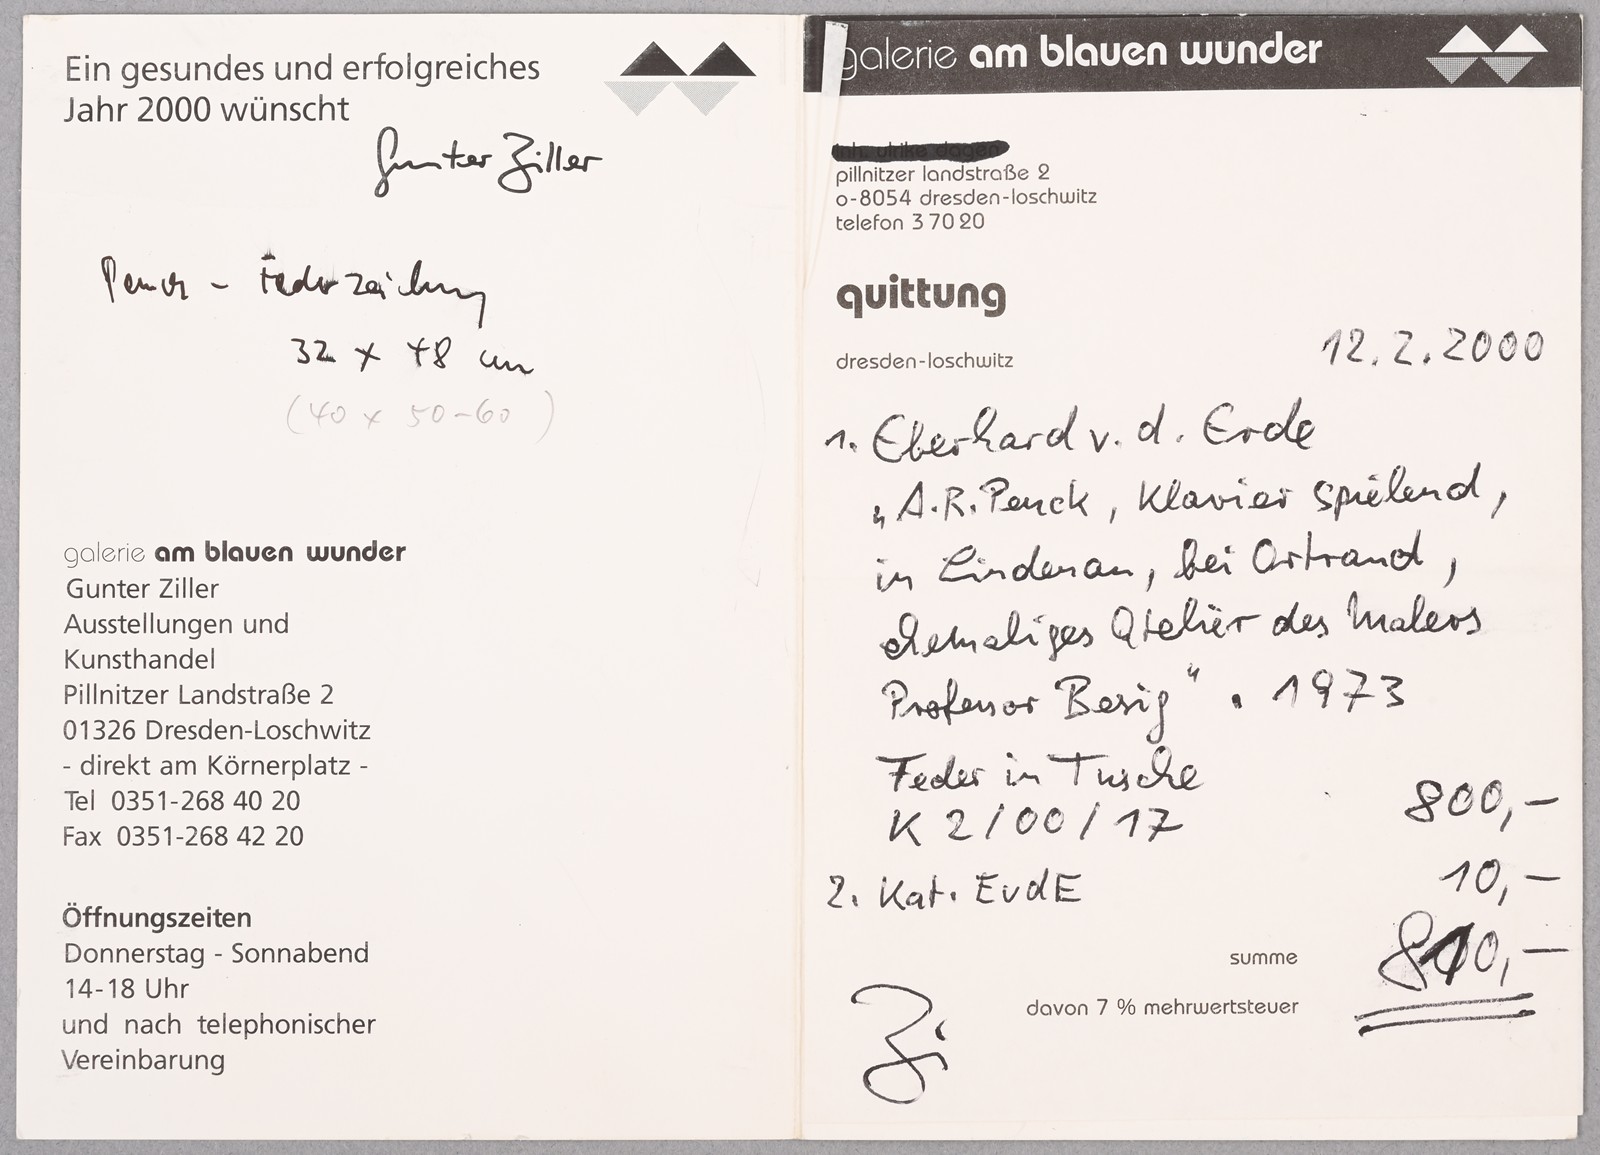 Ein gesundes und erfolgreiches
Jahr 2000 wünscht
Gunter Ziller
Penck - Federzeichnung
32 x 48 cm
(40 x 50-60)
galerie am blauen wunder
Gunter Ziller
Ausstellungen und
Kunsthandel
Pillnitzer Landstraße 2
01326 Dresden-Loschwitz
- direkt am Körnerplatz -
Tel 0351-268 40 20
Fax 0351-268 42 20
Öffnungszeiten
Donnerstag - Sonnabend
14-18 Uhr
und nach telephonischer
Vereinbarung
galerie am blauen wunder
inh. ulrike dagen
pillnitzer landstraße 2
o-8054 dresden-loschwitz
telefon 3 70 20
quittung
dresden-loschwitz 12.2.2000
1. Eberhard v. d. Erde
„A.R. Penck, Klavier spielend,
in Lindenau, bei Ortrand,
ehemaliges Atelier des Malers
Professor Besig". 1973
Feder in Tusche
K 2/00/17 800,-
2. Kat. EvdE 10,-
summe 810,-
davon 7 % mehrwertsteuer
Zi